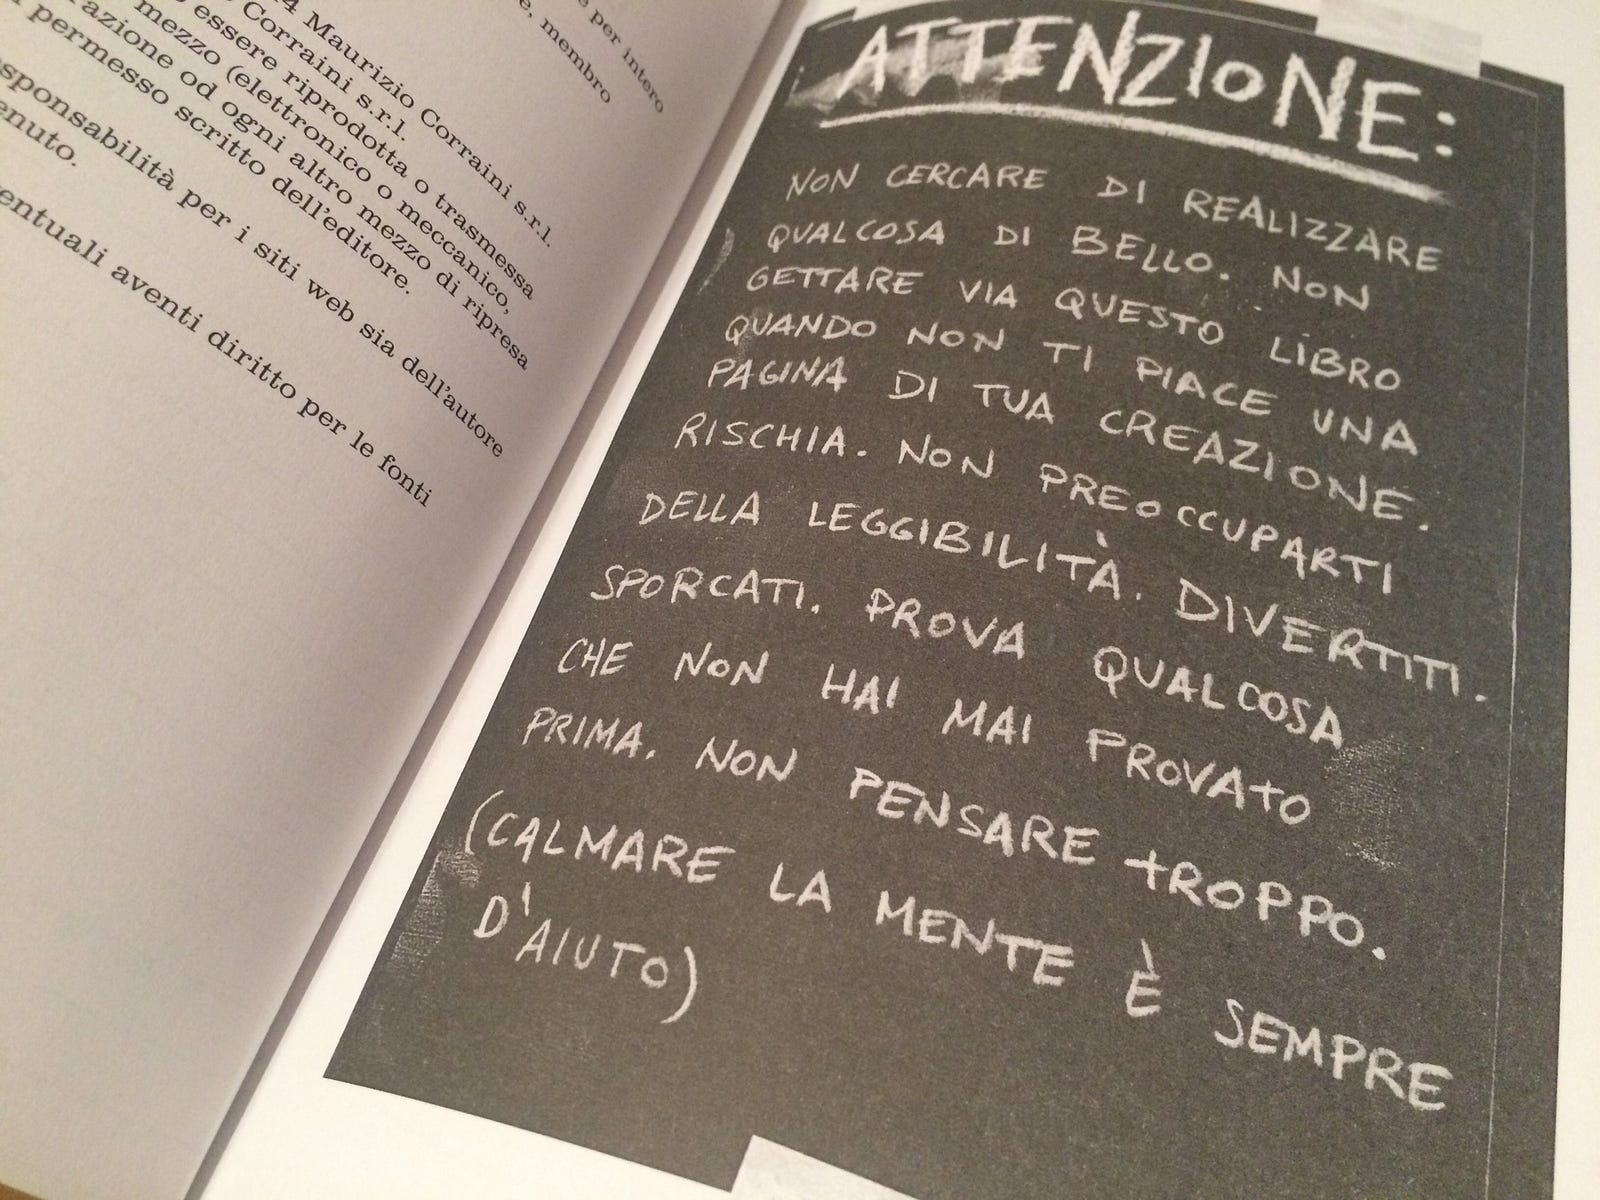 e per intero
e, membro
Maurizio Corraini s.r.l.
Corraini s.r.l.
essere riprodotta o trasmessa
mezzo (elettronico o meccanico,
razione od ogni altro mezzo di ripresa
permesso scritto dell'editore.
sponsabilità per i siti web sia dell'autore
enuto.
entuali aventi diritto per le fonti
ATTENZIONE:
NON CERCARE DI REALIZZARE
QUALCOSA DI BELLO. NON
GETTARE VIA QUESTO LIBRO
QUANDO NON TI PIACE UNA
PAGINA DI TUA CREAZIONE.
RISCHIA. NON PREOCCUPARTI
DELLA LEGGIBILITÀ. DIVERTITI.
SPORCATI. PROVA QUALCOSA
CHE NON HAI MAI PROVATO
PRIMA. NON PENSARE TROPPO.
(CALMARE LA MENTE È SEMPRE
D'AIUTO)